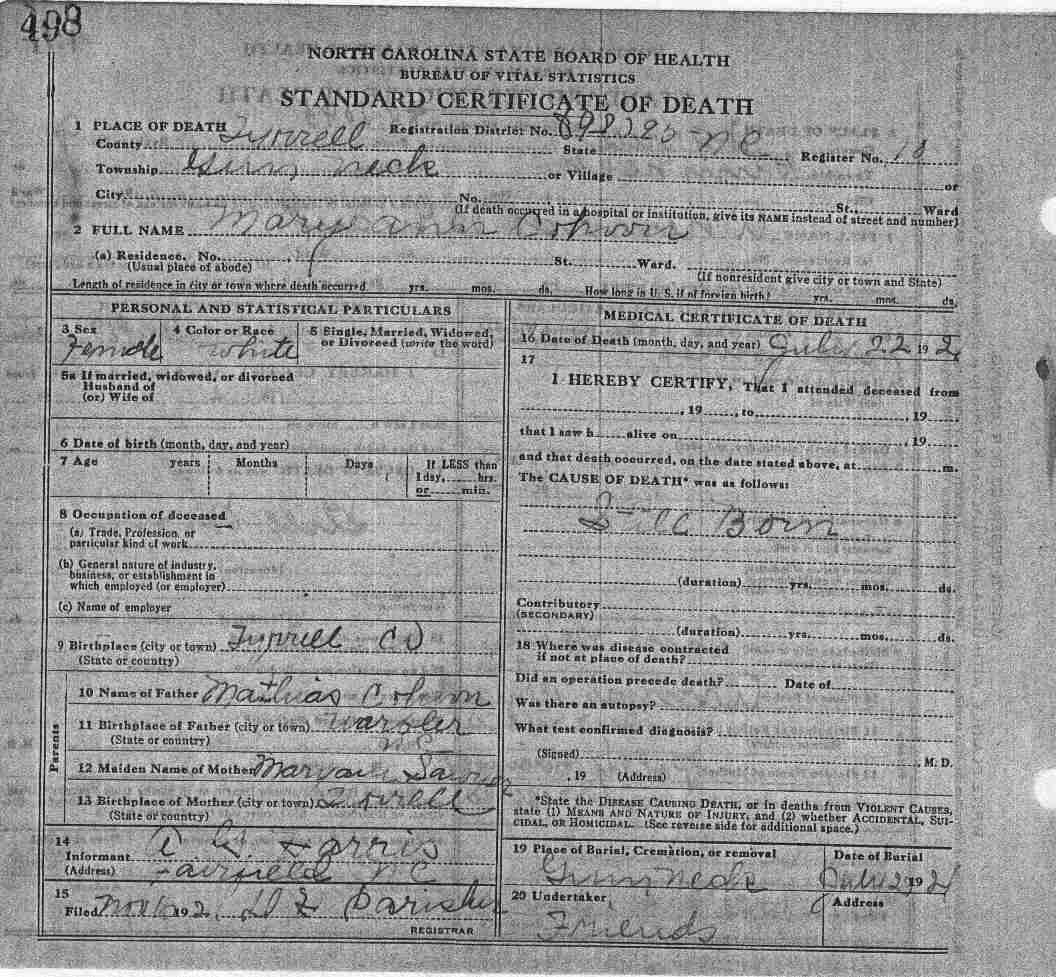 498
NORTH CAROLINA STATE BOARD OF HEALTH
BUREAU OF VITAL STATISTICS
STANDARD CERTIFICATE OF DEATH
1 PLACE OF DEATH
County Tyrrell Registration District No. State NC Register No.
Township Gum Neck or Village or
City No. St., Ward
(If death occurred in a hospital or institution, give its NAME instead of street and number)
2 FULL NAME Mary Ann
(a) Residence. No. St. Ward.
(Usual place of abode) (If nonresident give city or town and State)
Length of residence in city or town where death occurred yrs. mos. ds. How long in U. S. if of foreign birth? yrs. mos. ds.
PERSONAL AND STATISTICAL PARTICULARS
3 Sex 4 Color or Race 5 Single, Married, Widowed, or Divorced (write the word)
Female white
5a If married, widowed, or divorced
Husband of
(or) Wife of
6 Date of birth (month, day, and year)
7 Age years Months Days If LESS than
1 day, hrs.
or min.
8 Occupation of deceased
(a) Trade, Profession, or
particular kind of work
(b) General nature of industry,
business, or establishment in
which employed (or employer)
(c) Name of employer
9 Birthplace (city or town) Tyrrell Co
(State or country)
Parents
10 Name of Father Mathias
11 Birthplace of Father (city or town)
(State or country) NC
12 Maiden Name of Mother
13 Birthplace of Mother (city or town) Tyrrell
(State or country)
14
Informant Harris
(Address) Fairfield NC
15
Filed Nov 192
REGISTRAR
MEDICAL CERTIFICATE OF DEATH
16 Date of Death (month, day, and year) July 22 192
17
I HEREBY CERTIFY, That I attended deceased from
, 19 , to , 19
that I saw h alive on , 19
and that death occurred, on the date stated above, at m.
The CAUSE OF DEATH* was as follows:
Still Born
(duration) yrs. mos. ds.
Contributory
(SECONDARY)
(duration) yrs. mos. ds.
18 Where was disease contracted
if not at place of death?
Did an operation precede death? Date of
Was there an autopsy?
What test confirmed diagnosis?
(Signed) , M. D.
, 19 (Address)
*State the DISEASE CAUSING DEATH, or in deaths from VIOLENT CAUSES,
state (1) MEANS AND NATURE OF INJURY, and (2) whether ACCIDENTAL, SUI-
CIDAL, OR HOMICIDAL. (See reverse side for additional space.)
19 Place of Burial, Cremation, or removal Date of Burial
Gum Neck July 192
20 Undertaker Address
Friends